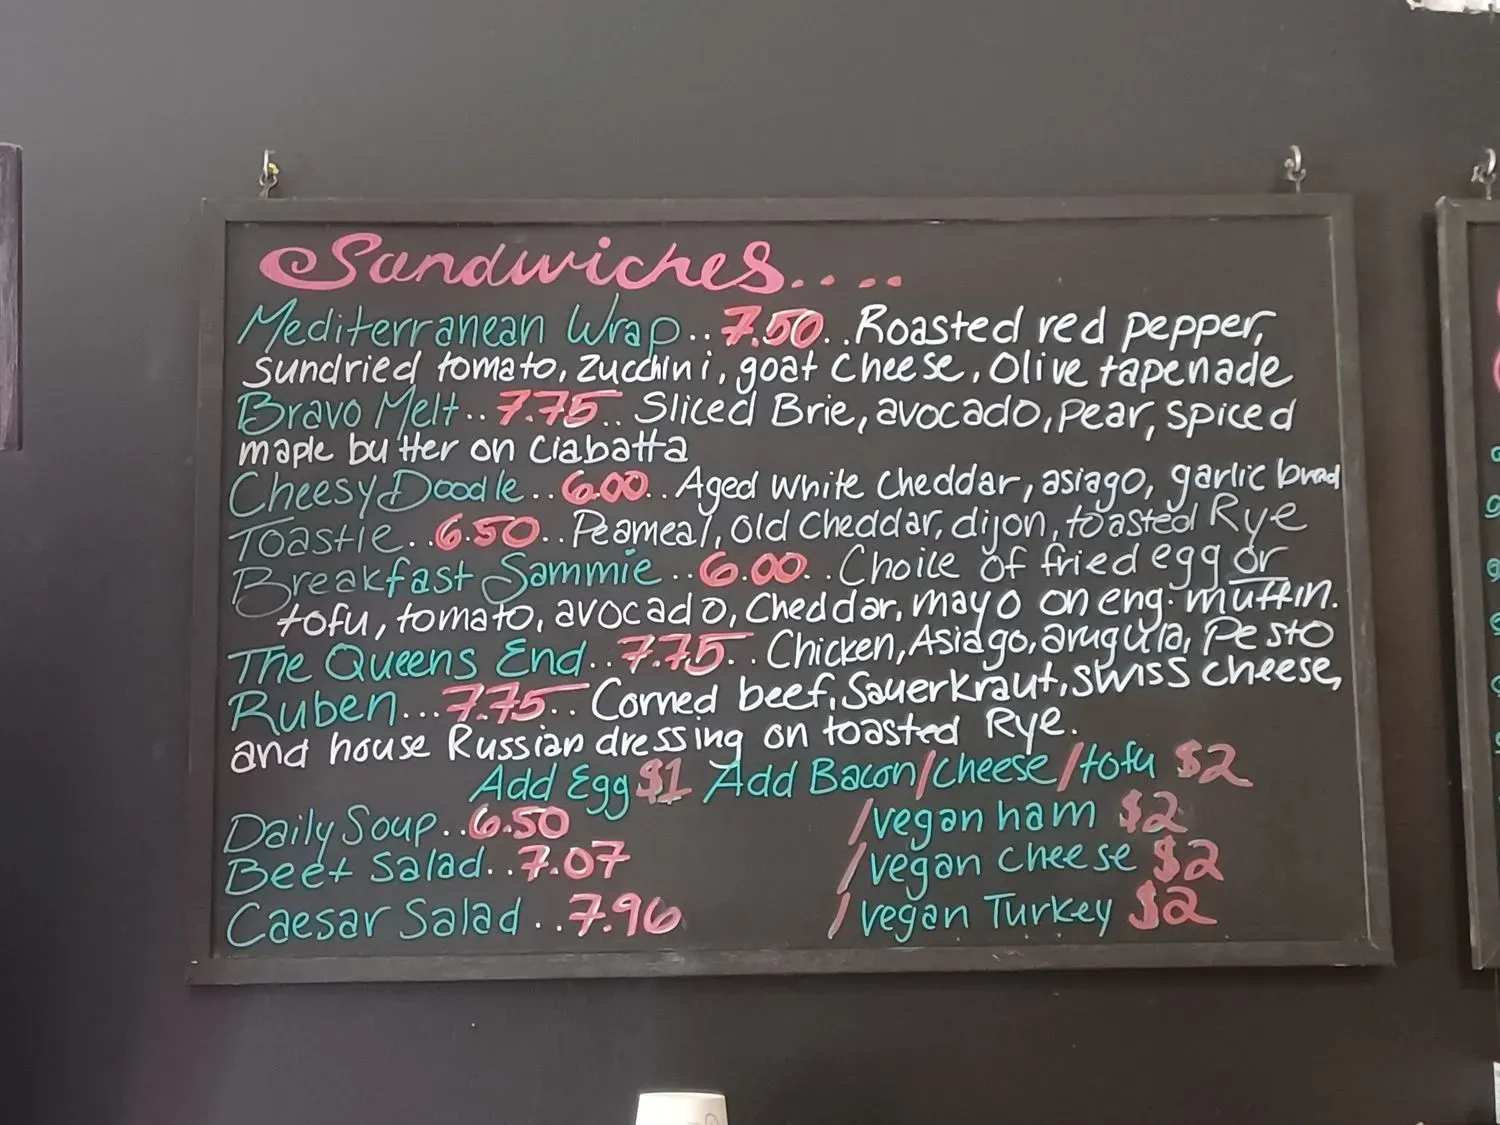 Sandwiches....
Mediterranean Wrap..7.50..Roasted red pepper,
sundried tomato, zucchini, goat cheese, Olive tapenade
Bravo Melt..7.75..Sliced Brie, avocado, pear, spiced
maple butter on Ciabatta
Cheesy Doodle..6.00..Aged white cheddar, asiago, garlic bread
Toastie..6.50..Peameal, old cheddar, dijon, toasted Rye
Breakfast Sammie..6.00..Choice of fried egg or
tofu, tomato, avocado, Cheddar, mayo on eng. muffin.
The Queens End..7.75..Chicken, Asiago, arugula, Pesto
Ruben...7.75..Corned beef, Sauerkraut, swiss cheese,
and house Russian dressing on toasted Rye.
Add Egg $1 Add Bacon/cheese/tofu $2
Daily Soup..6.50 /vegan ham $2
Beet Salad..7.07 /vegan cheese $2
Caesar Salad..7.96 /vegan Turkey $2